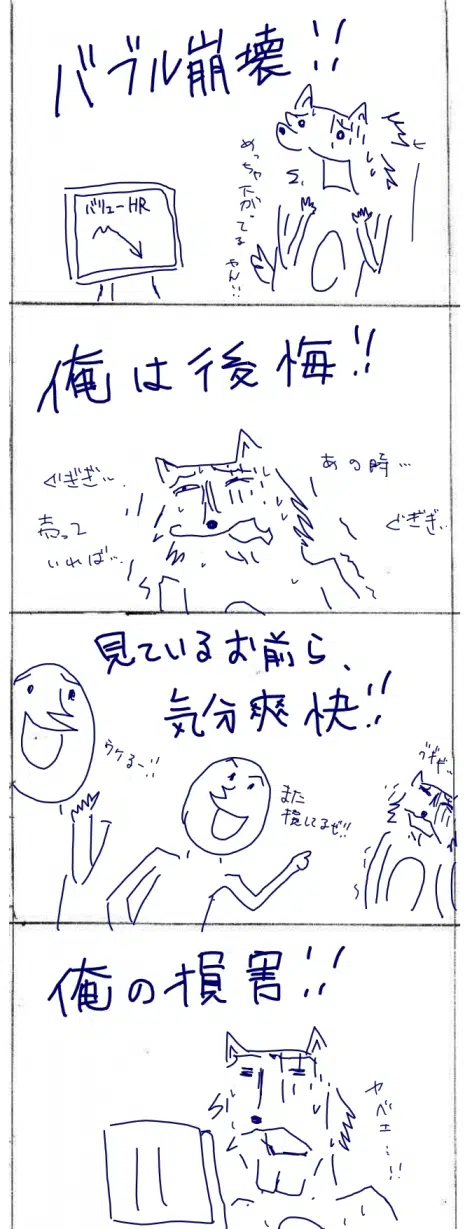 バブル崩壊!!
めっちゃ下がってるやん!!
バリューHR
俺は後悔!!
あの時…
ぐぎぎ…
売って
いれば…
ぐぎぎ…
見ているお前ら、
気分爽快!!
ウケるー!!
また
損してるぜ!!
グギギ…
俺の損害!!
ヤベェ…!!